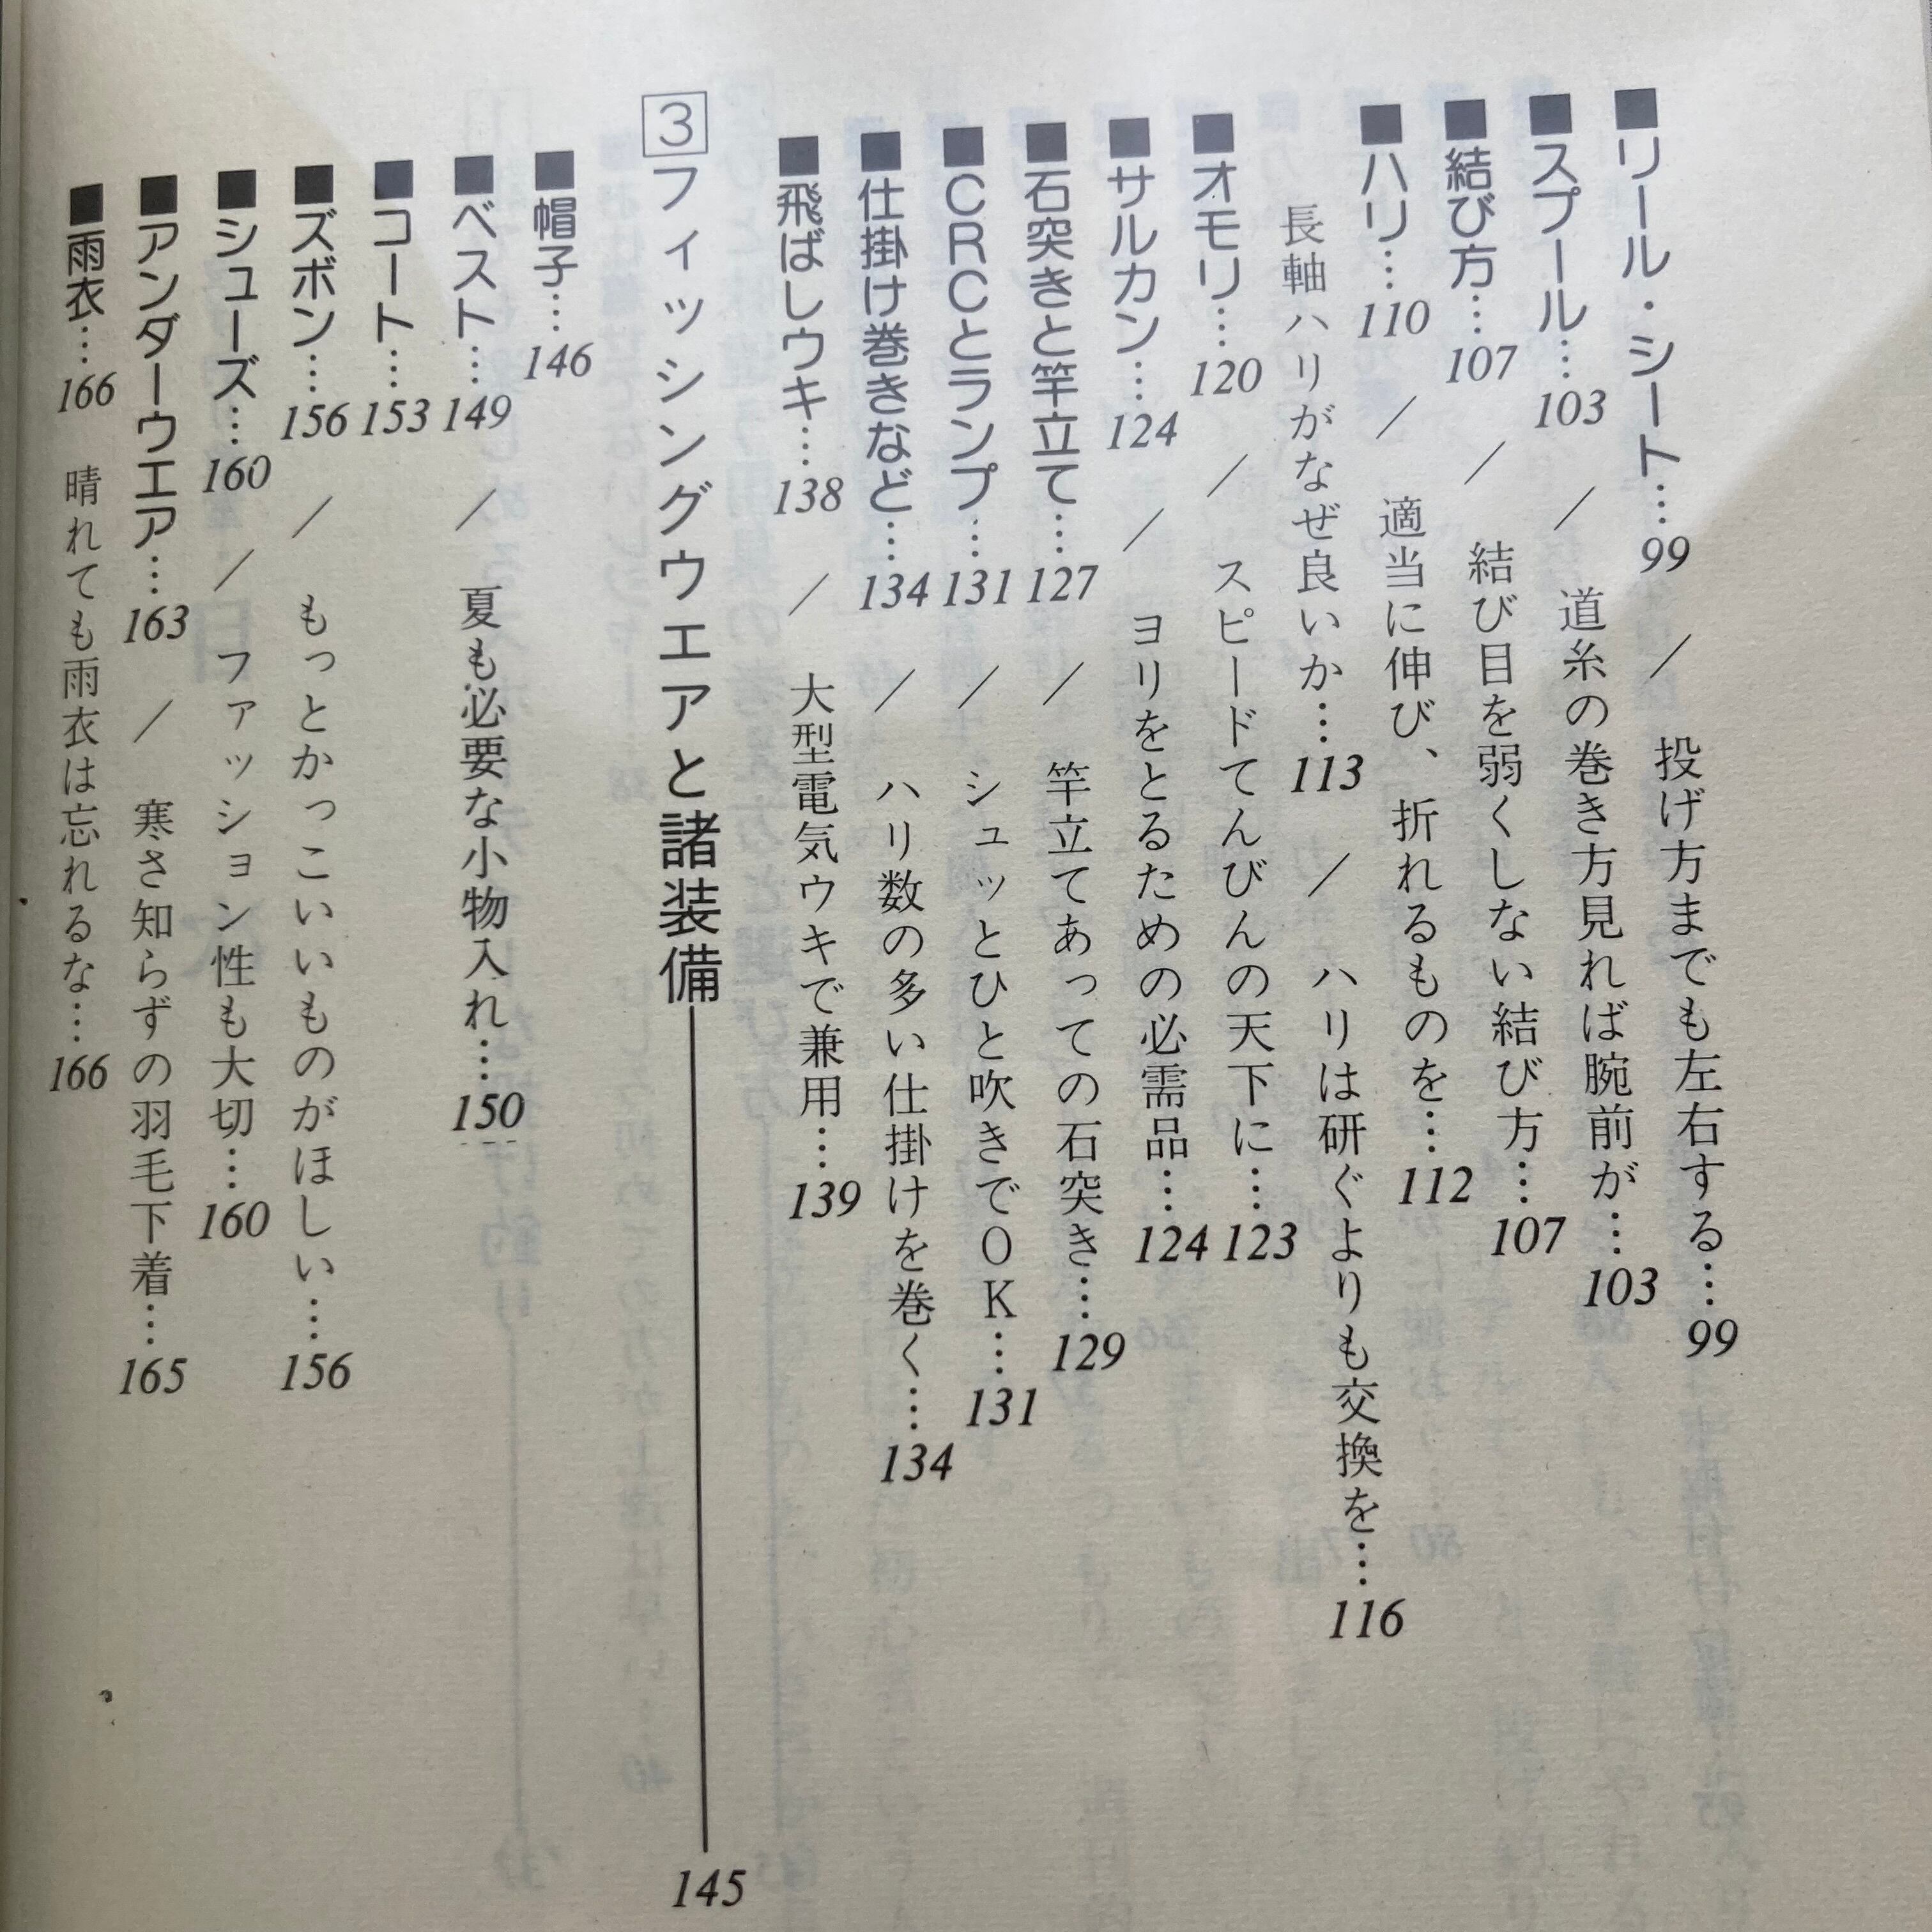 ■リール・シート…99 ／ 投げ方までも左右する…99
■スプール…103 ／ 道糸の巻き方見れば腕前が…103
■結び方…107 ／ 結び目を弱くしない結び方…107
■ハリ…110 ／ 適当に伸び、折れるものを…112
長軸ハリがなぜ良いか…113 ／ ハリは研ぐよりも交換を…116
■オモリ…120 ／ スピードてんびんの天下に…123
■サルカン…124 ／ ヨリをとるための必需品…124
■石突きと竿立て…127 ／ 竿立てあっての石突き…129
■CRCとランプ…131 ／ シュッとひと吹きでOK…131
■仕掛け巻きなど…134 ／ ハリ数の多い仕掛けを巻く…134
■飛ばしウキ…138 ／ 大型電気ウキで兼用…139
3 フィッシングウエアと諸装備 145
■帽子…146
■ベスト…149 ／ 夏も必要な小物入れ…150
■コート…153
■ズボン…156 ／ もっとかっこいいものがほしい…156
■シューズ…160 ／ ファッション性も大切…160
■アンダーウエア…163 ／ 寒さ知らずの羽毛下着…165
■雨衣…166 晴れても雨衣は忘れるな…166